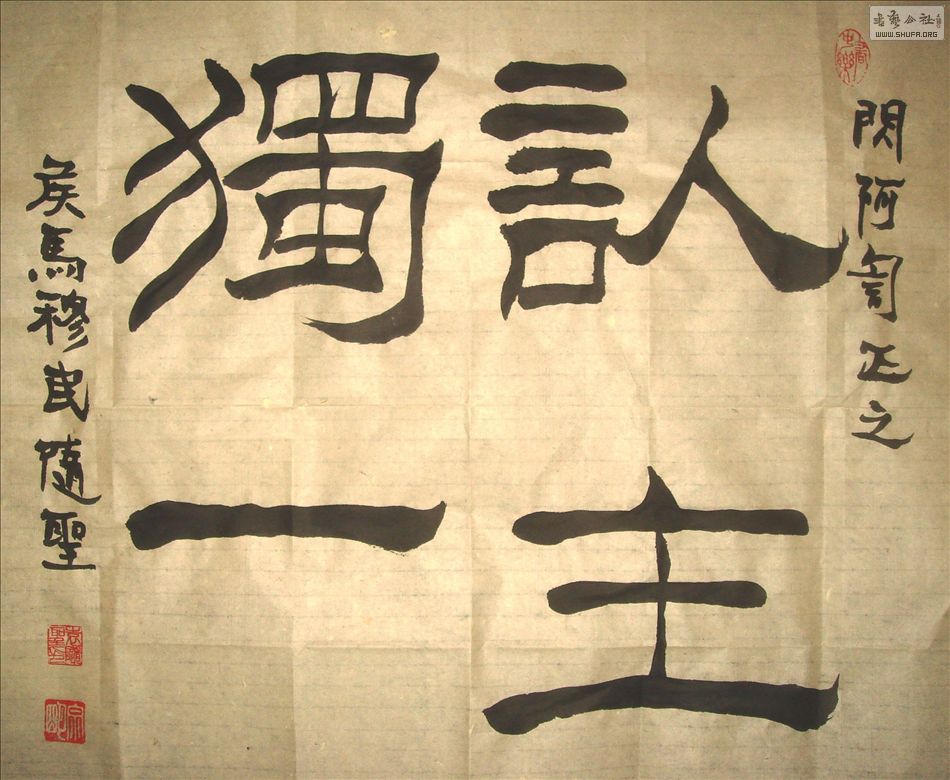 書藝公社
WWW.SHUFA.ORG
閃阿訇正之
认主
獨一
矦馬穆民隨聖